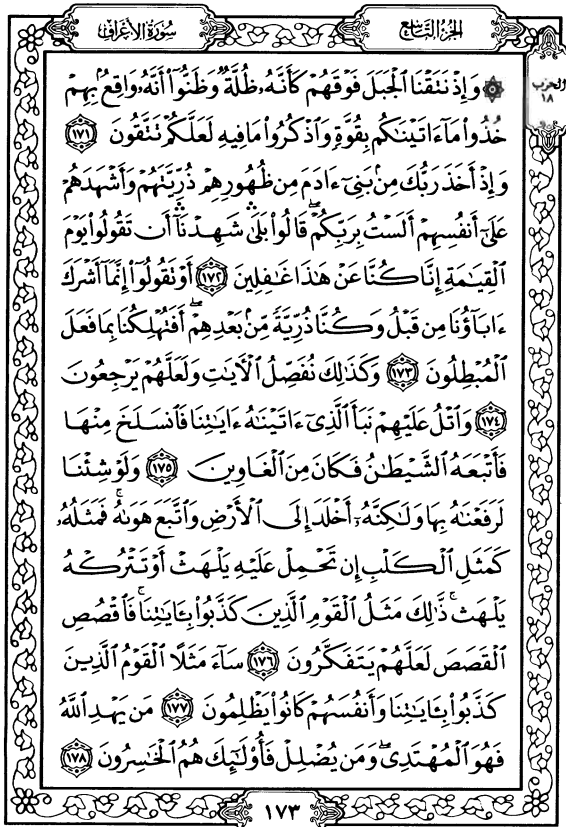 سُورَةُ الأَعْرَافِ
الجُزْءُ التَّاسِعُ
الحزب
١٨
۞ وَإِذْ نَتَقْنَا ٱلْجَبَلَ فَوْقَهُمْ كَأَنَّهُۥ ظُلَّةٌ وَظَنُّوٓا۟ أَنَّهُۥ وَاقِعٌۢ بِهِمْ
خُذُوا۟ مَآ ءَاتَيْنَـٰكُم بِقُوَّةٍ وَٱذْكُرُوا۟ مَا فِيهِ لَعَلَّكُمْ تَتَّقُونَ ١٧١
وَإِذْ أَخَذَ رَبُّكَ مِنۢ بَنِىٓ ءَادَمَ مِن ظُهُورِهِمْ ذُرِّيَّتَهُمْ وَأَشْهَدَهُمْ
عَلَىٰٓ أَنفُسِهِمْ أَلَسْتُ بِرَبِّكُمْ ۖ قَالُوا۟ بَلَىٰ ۛ شَهِدْنَآ ۛ أَن تَقُولُوا۟ يَوْمَ
ٱلْقِيَـٰمَةِ إِنَّا كُنَّا عَنْ هَـٰذَا غَـٰفِلِينَ ١٧٢ أَوْ تَقُولُوٓا۟ إِنَّمَآ أَشْرَكَ
ءَابَآؤُنَا مِن قَبْلُ وَكُنَّا ذُرِّيَّةً مِّنۢ بَعْدِهِمْ ۖ أَفَتُهْلِكُنَا بِمَا فَعَلَ
ٱلْمُبْطِلُونَ ١٧٣ وَكَذَٰلِكَ نُفَصِّلُ ٱلْـَٔايَـٰتِ وَلَعَلَّهُمْ يَرْجِعُونَ
١٧٤ وَٱتْلُ عَلَيْهِمْ نَبَأَ ٱلَّذِىٓ ءَاتَيْنَـٰهُ ءَايَـٰتِنَا فَٱنسَلَخَ مِنْهَا
فَأَتْبَعَهُ ٱلشَّيْطَـٰنُ فَكَانَ مِنَ ٱلْغَاوِينَ ١٧٥ وَلَوْ شِئْنَا
لَرَفَعْنَـٰهُ بِهَا وَلَـٰكِنَّهُۥٓ أَخْلَدَ إِلَى ٱلْأَرْضِ وَٱتَّبَعَ هَوَىٰهُ ۚ فَمَثَلُهُۥ
كَمَثَلِ ٱلْكَلْبِ إِن تَحْمِلْ عَلَيْهِ يَلْهَثْ أَوْ تَتْرُكْهُ
يَلْهَث ۚ ذَّٰلِكَ مَثَلُ ٱلْقَوْمِ ٱلَّذِينَ كَذَّبُوا۟ بِـَٔايَـٰتِنَا ۚ فَٱقْصُصِ
ٱلْقَصَصَ لَعَلَّهُمْ يَتَفَكَّرُونَ ١٧٦ سَآءَ مَثَلًا ٱلْقَوْمُ ٱلَّذِينَ
كَذَّبُوا۟ بِـَٔايَـٰتِنَا وَأَنفُسَهُمْ كَانُوا۟ يَظْلِمُونَ ١٧٧ مَن يَهْدِ ٱللَّهُ
فَهُوَ ٱلْمُهْتَدِى ۖ وَمَن يُضْلِلْ فَأُو۟لَـٰٓئِكَ هُمُ ٱلْخَـٰسِرُونَ ١٧٨
١٧٣